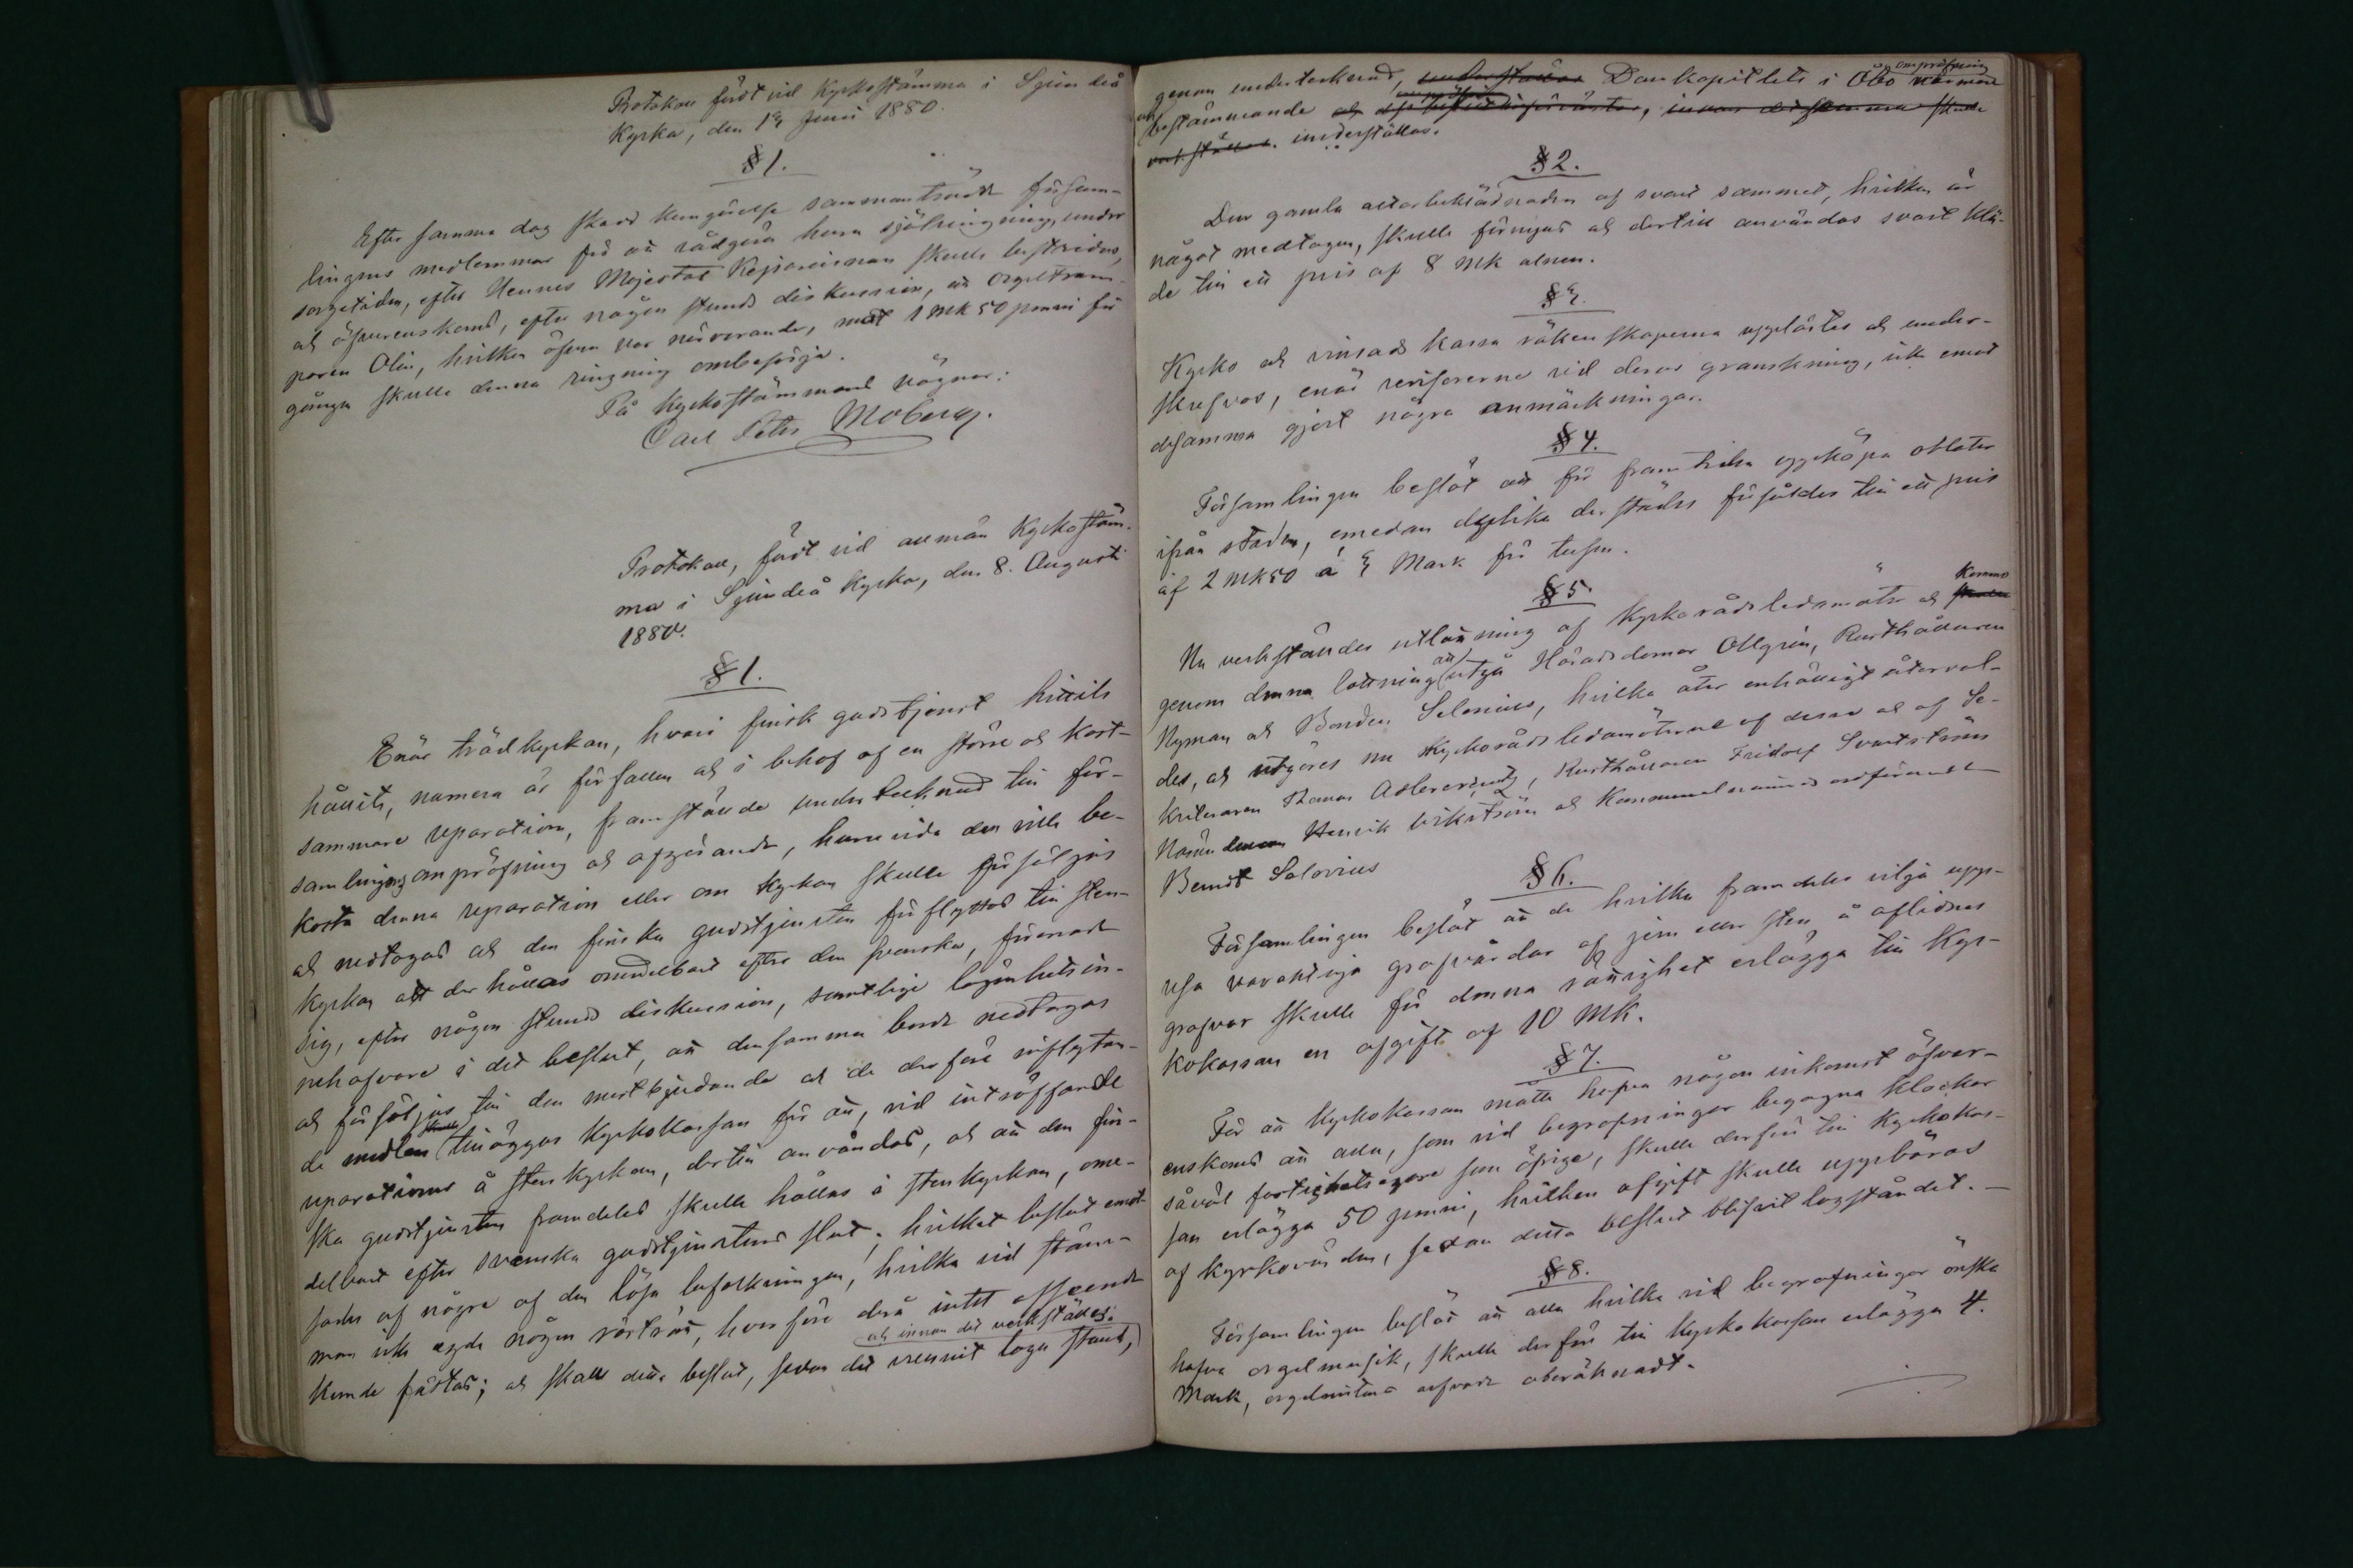 Protokoll fördt vid Kyrkostämma i Sjundeå
Kyrka, den 13 Juni 1880.
§ 1.
Efter samma dag skedd kungörelse sammanträdde försam-
lingens medlemmar för att rådgöra huru själringning, under
sorgetiden, efter Hennes Majestät Kejsarinnan skulle bestridas,
och öfverenskoms, efter någon stunds diskussion, att Orgeltram-
paren Olin, hvilken äfven var närvarande, mot 1 mk 50 penni för
gången skulle denna ringning ombesörja.
På Kyrkostämmans vägnar:
Carl Peter Moberg.
Protokoll, fördt vid allmän Kyrkostäm-
ma i Sjundeå Kyrka, den 8. Augusti
1880.
§ 1.
Enär trädkyrkan, hvari finsk gudstjenst hittils
hållits, numera är förfallen och i behof af en större och kost-
sammare reparation, framställde undertecknad till för-
samlingens ompröfning och afgörande, huruvida den ville be-
kosta denna reparation eller om Kyrkan skulle försäljas
och nedtagas och den finska gudstjensten förflyttas till sten-
kyrkan att der hållas omedelbart efter den svenska, förenade
sig, efter någon stunds diskussion, samtlige lägenhetsin-
nehafvare i det beslut, att densamma borde nedtagas
och försäljas till den mestbjudande och de derföre inflytan-
de medlen skulle tilläggas Kyrkokassan för att, vid inträffande
reparationer å stenkyrkan, dertill användas, och att den fin-
ska gudstjensten framdeles skulle hållas i stenkyrkan, ome-
delbart efter svenska gudstjenstens slut; hvilket beslut emot-
sades af några af den lösa befolkningen, hvilka vid stäm-
man icke egde någon rösträtt, hvarföre derå intet afseende
och innan det verkställes.
kunde fästas; och skall detta beslut, sedan det vunnit laga kraft,
genom undertecknad, understallas Domkapitlets i Åbo närmare
ompröfning
och bestämmande
verkställas. underställas.
§ 2.
Den gamla altarbeklädnaden af svart sammet, hvilken är
något medtagen, skulle förnyas och dertill användas svart klä-
de till ett pris af 8 mk alnen.
§ 3.
Kyrko och vinsäds kassa räkenskaperna upplästes och under-
skrefvos, enär revisorerne vid deras granskning, icke emot
desamma gjort några anmärkningar.
§ 4.
Församlingen beslöt att för framtiden uppköpa oblater
ifrån staden, emedan dylika derstädes försåldes till ett pris
af 2 mk 50 à 3 Mark för tusen.
§ 5.
Nu verkställdes utlottning af Kyrkorådsledamöter och skulle
Kommo
genom denna lottning att utgå Häradsdomar Ollgrén, Rusthållaren
Nyman och Bonden Selenius, hvilka åter enhälligt återval-
des, och utgöres nu Kyrkorådsledamöterne af dessa och af Se-
kreteraren Thomas Adlercreutz, Rusthållaren Fridolf Svartström
Nämndeman Henrik Wikström och Kommunalnämnds ordförande
Berndt Salovius
§ 6.
Församlingen beslöt att de hvilka framdeles vilja upp-
resa varaktiga grafvårdar af jern eller sten å aflidnas
grafvar skulle för denna rättighet erlägga till Kyr-
kokassan en afgift af 10 mk.
§ 7.
För att Kyrkokassan måtte hafva någon inkomst öfver-
enskoms att alla, som vid begrafningar begagna klockor
såväl fastighetsegare som öfrige, skulle derför till Kyrkokas-
san erlägga 50 penni, hvilken afgift skulle uppbäras
af Kyrkovärden, sedan detta beslut blifvit lagståndet. —
§ 8.
Församlingen beslöt att alla hvilka vid begrafningar önska
hafva orgelmusik, skulle derför till Kyrkokassan erlägga 4.
Mark, orgelnistens arfvode oberäknadt.